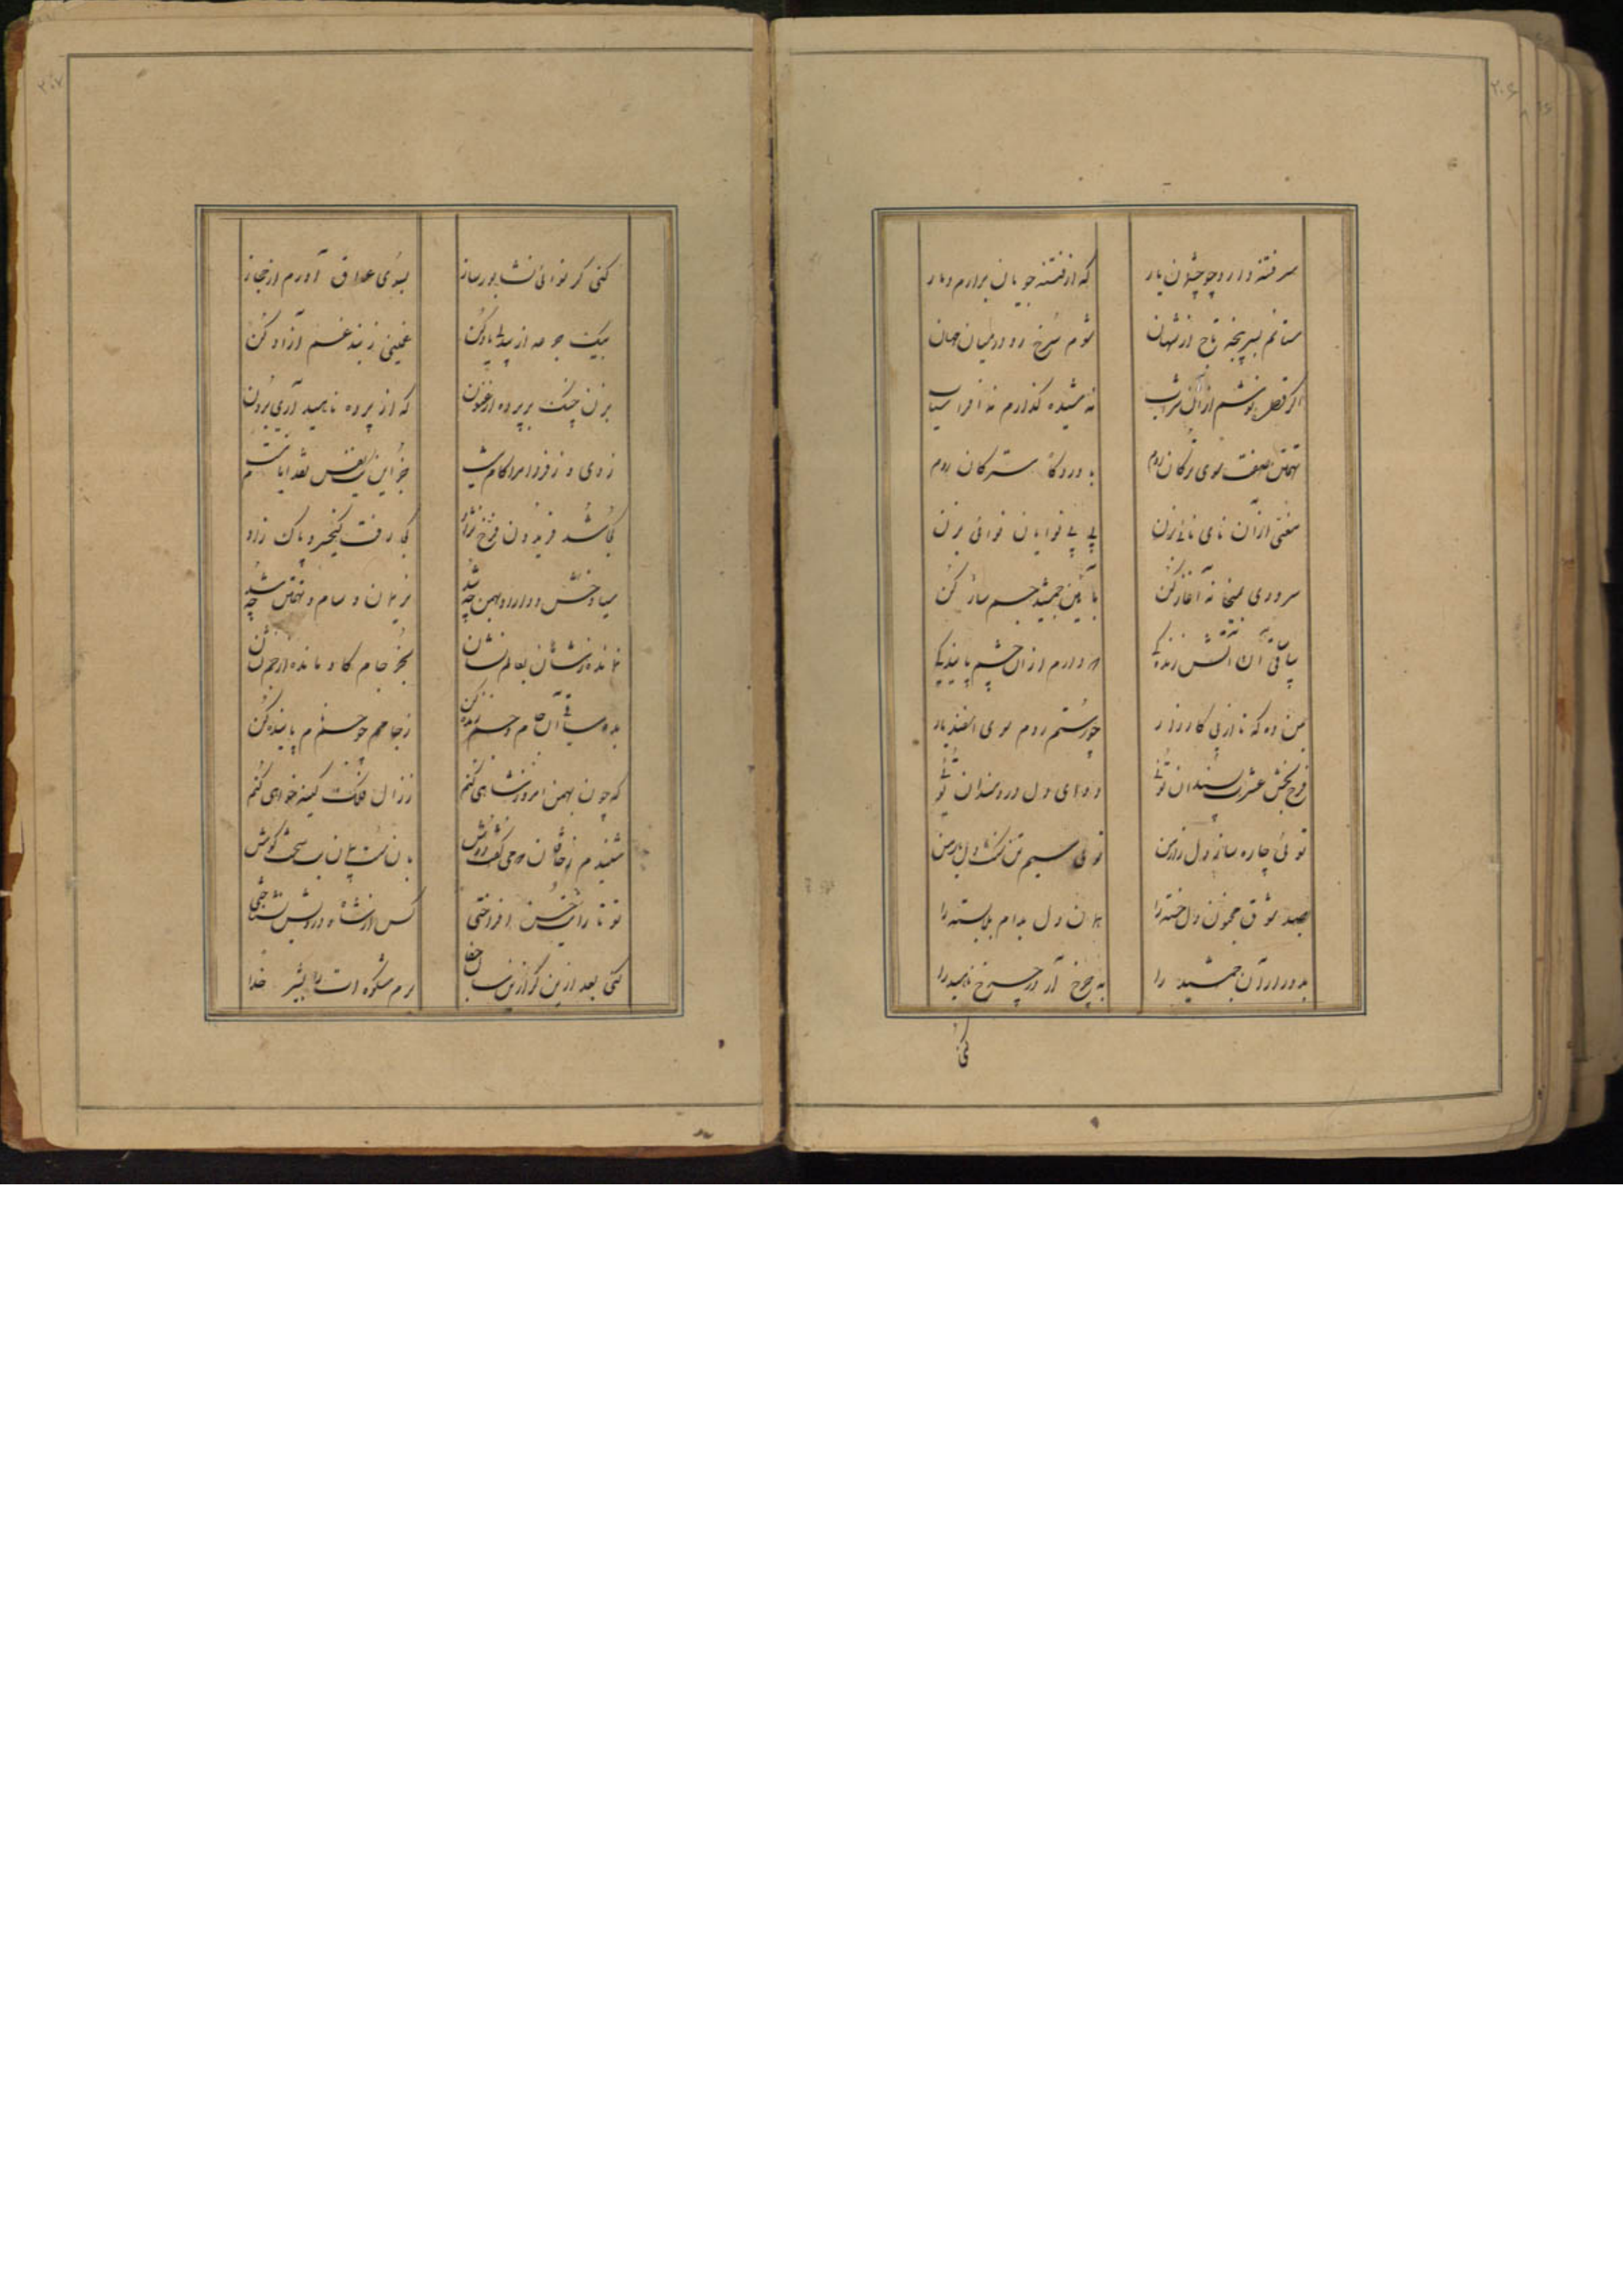 ۲۰۶
سر فتنه دارد چو چشمان یار که از فتنه جویان برارم دمار
ستانم بسر پنجه تاج از شهان شوم سرخ رو در میان جهان
اگر بنوشم ازان شراب نه جمشید گذارم نه افراسیاب
تهمتن صفت سوی ترکان روم
مغنی ازان نای نائی بزن پی بی نوایان نوائی بزن
سرودی بمیخانه آغاز کن بآئین جمشید جم ساز کن
بیا ساقی آن آتش زندگی که دارم ازان چشم پایندگی
بمن ده که تا از پی کارزار چو رستم روم سوی اسفندیار
فرح بخش عشرت پسندان توئی دوای دل دردمندان توئی
توئی چاره ساز دل زار من توئی سیم تن
بصد شوق مجنون دل خسته را بدام بلا بسته را
بدور آر آن جمشید را به چرخ آر در چرخ ناهید را
کنی
۲۰۷
کنی گر نوائی نشابور ساز بسوی عراق آورم از حجاز
بیک جرعه از بیدلی یاد کن غمینی ز بند غم آزاد کن
بزن چنگ بر پرده ارغنون که از پرده ناهید آری برون
ز دی و ز فردا مرا کام نیست جز این یک نفس نقد ایام نیست
کجا شد فریدون فرخ نژاد کجا رفت کیخسرو پاک زاد
سیاوخش و دارا و بهمن چه شد نریمان و سام و تهمتن چه شد
نمانده زیشان بعالم نشان بجز جام کاو مانده از جم نشان
بده ساقی آن جام و جم زنده کن ز جامم چو جم نام پاینده کن
که چون بهمن امروز شاهی کنم ز زال فلک کینه خواهی کنم
شنیدم ز خاقان که می گفت دوش بان سست پیمان سخت گوش
تو تا رایت حسن افراختی کس از شاه و درویش نشناختی
کنی بعد ازین گر ازین سان جفا برم شکوه ات را به پیش خدا